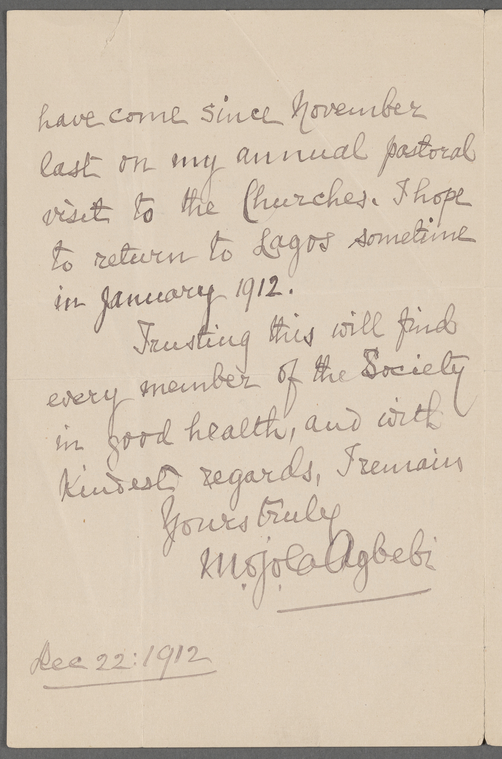 have come since November
last on my annual pastoral
visit to the Churches. I hope
to return to Lagos sometime
in January 1912.
Trusting this will find
every member of the Society
in good health, and with
kindest regards, I remain
Yours truly
Mojola Agbebi
Dec 22:1912